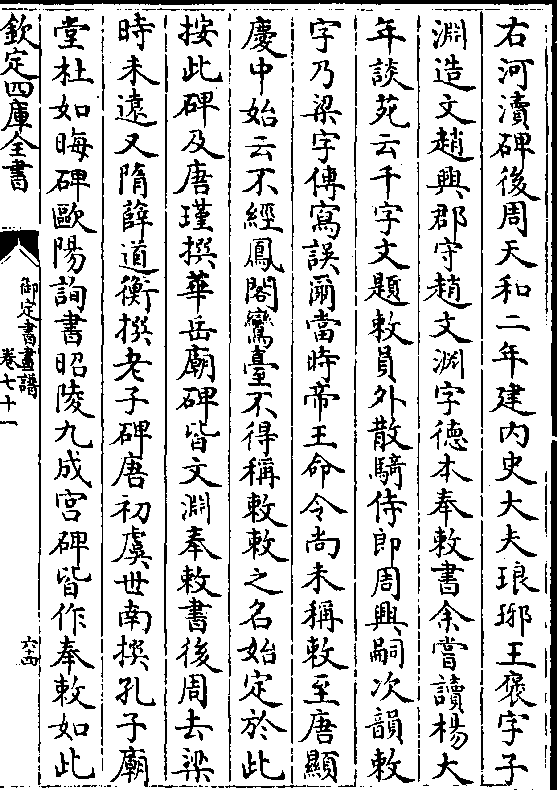 右河瀆碑後周天和二年建内史大夫琅琊王褒字子
淵造文趙興郡守趙文淵字德本奉敕書余嘗讀楊大
年談苑云千字文題敕員外散騎侍郎周興嗣次韻敕
字乃梁字傳寫誤爾當時帝王命令尚未稱敕至唐顯
慶中始云不經鳳閣鸞臺不得稱敕敕之名始定於此
按此碑及唐瑾撰華岳廟碑皆文淵奉敕書後周去梁
時未遠又隋薛道衡撰老子碑唐初虞世南撰孔子廟
堂杜如晦碑歐陽詢書昭陵九成宫碑皆作奉敕如此
欽定四庫全書
御定書畫譜
卷七十一
六十四